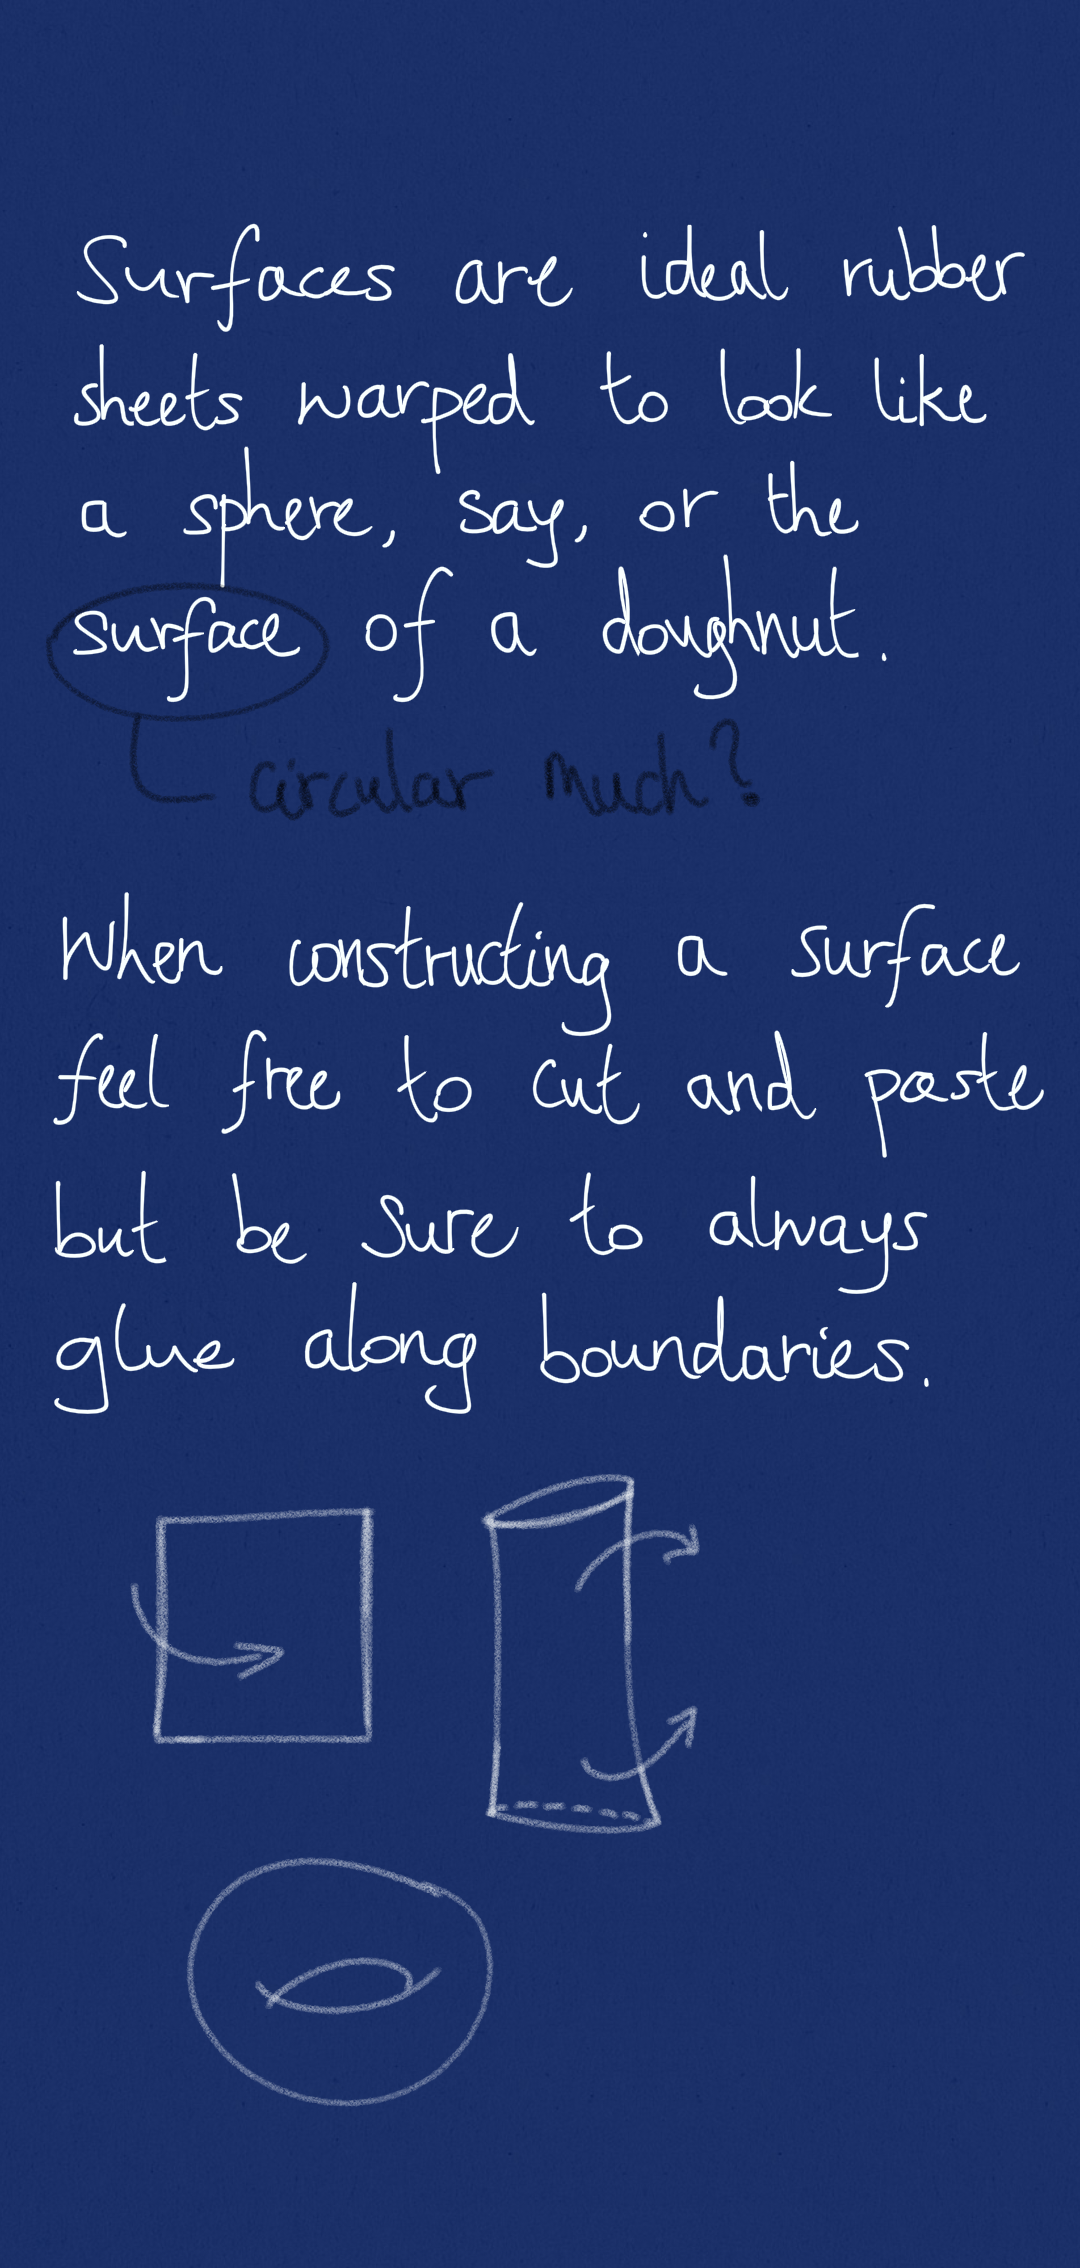 Surfaces are ideal rubber
sheets warped to look like
a sphere, say, or the
surface of a doughnut.
circular much?
When constructing a surface
feel free to cut and paste
but be sure to always
glue along boundaries.